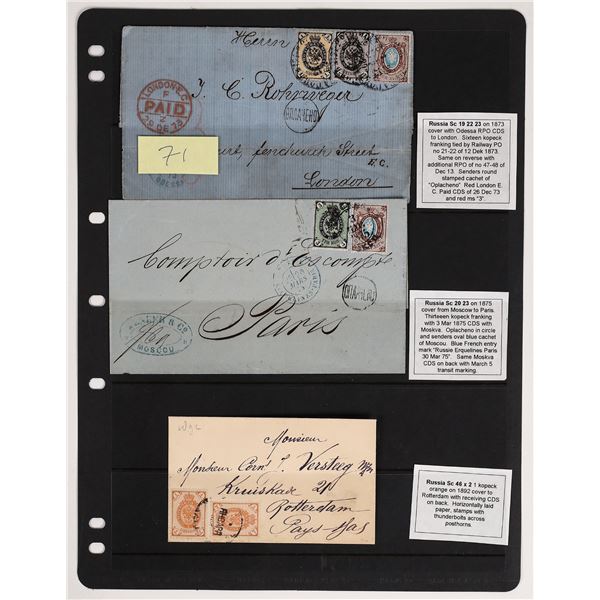 Herrn
J. C. Rohrweger
LONDON E.C.
F
PAID
Z
26 DE 73
71
Court, Fenchurch Street
E.C.
London
Comptoir d'Escompte
Paris
& Co
MOSCOU
Monsieur
Monsieur Corns J. Versteeg
Kruiskade 21
Rotterdam
Pays-Bas
Russia Sc 19 22 23 on 1873
cover with Odessa RPO CDS
to London. Sixteen kopeck
franking tied by Railway PO
no 21-22 of 12 Dek 1873.
Same on reverse with
additional RPO of no 47-48 of
Dec 13. Senders round
stamped cachet of
"Oplacheno" Red London E.
C. Paid CDS of 26 Dec 73
and red ms "3".
Russia Sc 20 23 on 1875
cover from Moscow to Paris.
Thirteeen kopeck franking
with 3 Mar 1875 CDS with
Moskva. Oplacheno in circle
and senders oval blue cachet
of Moscou. Blue French entry
mark "Russie Erquelines Paris
30 Mar 75". Same Moskva
CDS on back with March 5
transit marking.
Russia Sc 46 x 2 1 kopeck
orange on 1892 cover to
Rotterdam with receiving CDS
on back. Horizontally laid
paper, stamps with
thunderbolts across
posthorns.